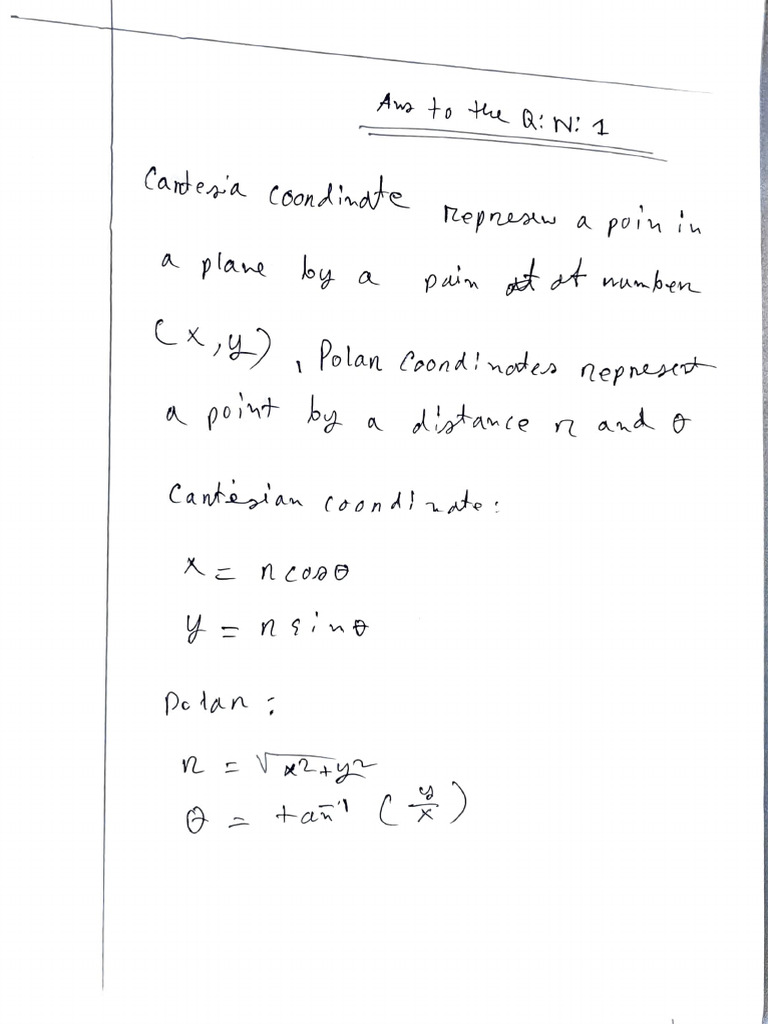 Ans to the Q: N: 1
Cartesia coordinate represen a poin in
a plane by a pair of number
(x, y), Polar coordinates represent
a point by a distance r and θ
Cartesian coordinate:
x = r cosθ
y = r sinθ
Polar:
r = √x²+y²
θ = tan⁻¹ (y/x)